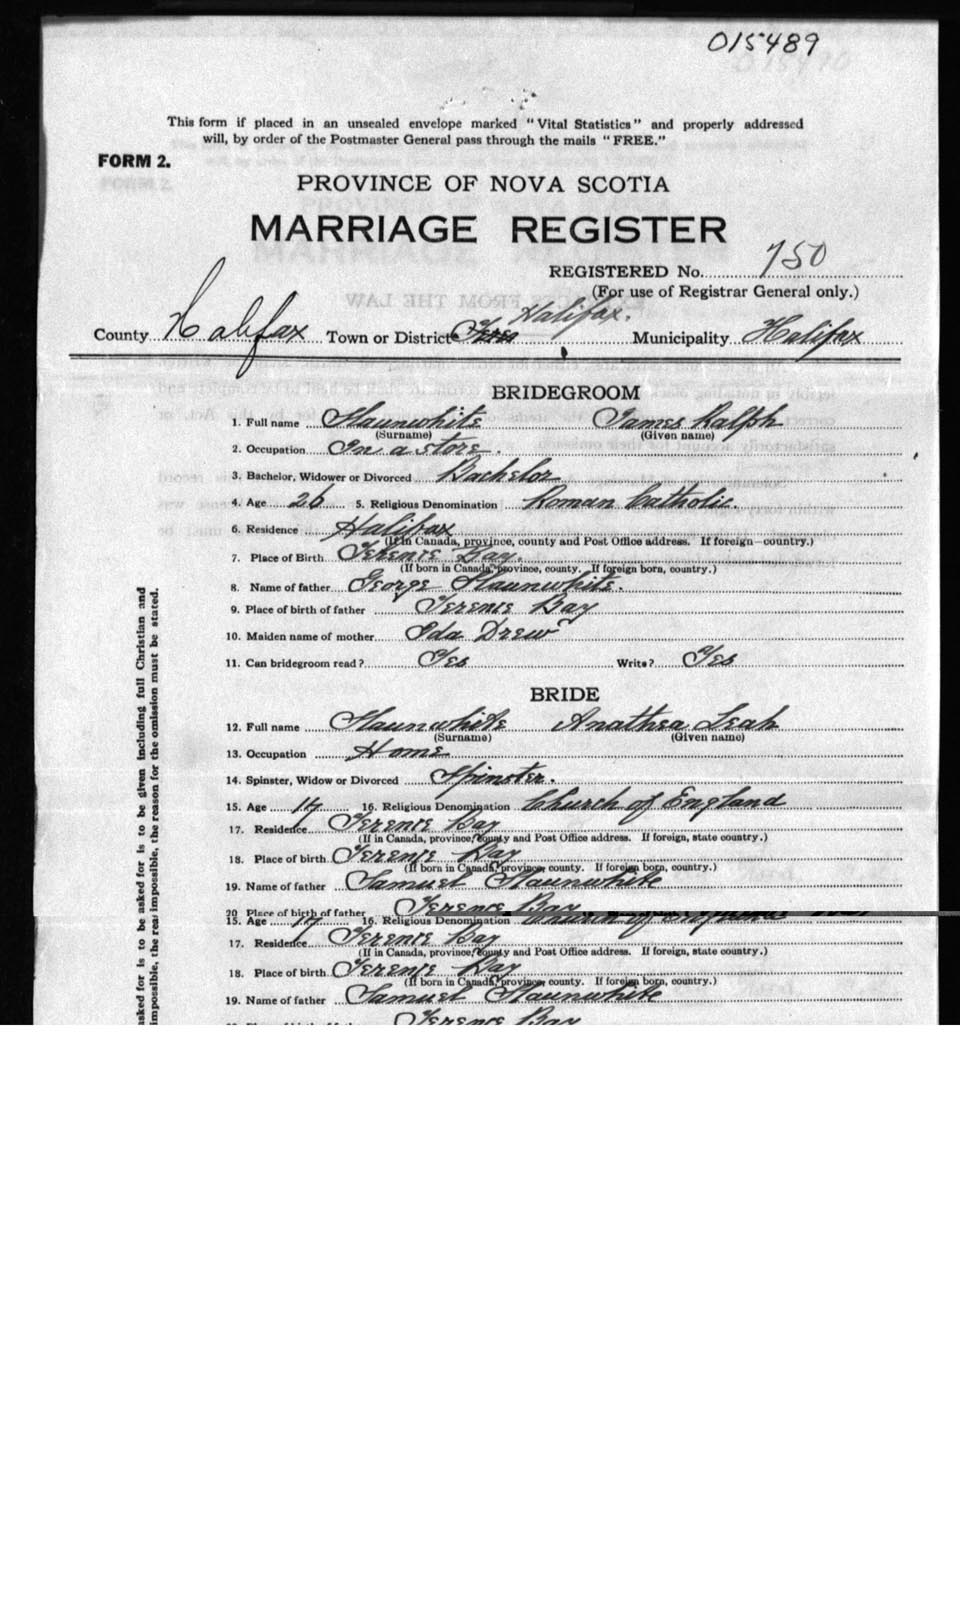 015489
This form if placed in an unsealed envelope marked "Vital Statistics" and properly addressed
will, by order of the Postmaster General pass through the mails "FREE."
FORM 2.
PROVINCE OF NOVA SCOTIA
MARRIAGE REGISTER
REGISTERED No. 750
(For use of Registrar General only.)
County Halifax Town or District Halifax. Municipality Halifax
BRIDEGROOM
1. Full name Slaunwhite James Ralph
(Surname) (Given name)
2. Occupation In a store.
3. Bachelor, Widower or Divorced Bachelor
4. Age 26 5. Religious Denomination Roman Catholic.
6. Residence Halifax
(If in Canada, province, county and Post Office address. If foreign country.)
7. Place of Birth Terence Bay.
(If born in Canada, province, county. If foreign born, country.)
8. Name of father George Slaunwhite.
9. Place of birth of father Terence Bay
10. Maiden name of mother Ida Drew
11. Can bridegroom read? Yes Write? Yes
BRIDE
12. Full name Slaunwhite Anathea Leah
(Surname) (Given name)
13. Occupation Home
14. Spinster, Widow or Divorced Spinster.
15. Age 17 16. Religious Denomination Church of England
17. Residence Terence Bay
(If in Canada, province, county and Post Office address. If foreign, state country.)
18. Place of birth Terence Bay
(If born in Canada, province, county. If foreign born, country.)
19. Name of father Samuel Slaunwhite
20 Place of birth of father Terence Bay
15. Age 17 16. Religious Denomination
17. Residence Terence Bay
(If in Canada, province, county and Post Office address. If foreign, state country.)
18. Place of birth Terence Bay
(If born in Canada, province, county. If foreign born, country.)
19. Name of father Samuel Slaunwhite
Terence Bay
asked for is to be asked for is to be given including full Christian and
impossible, the reas impossible, the reason for the omission must be stated.